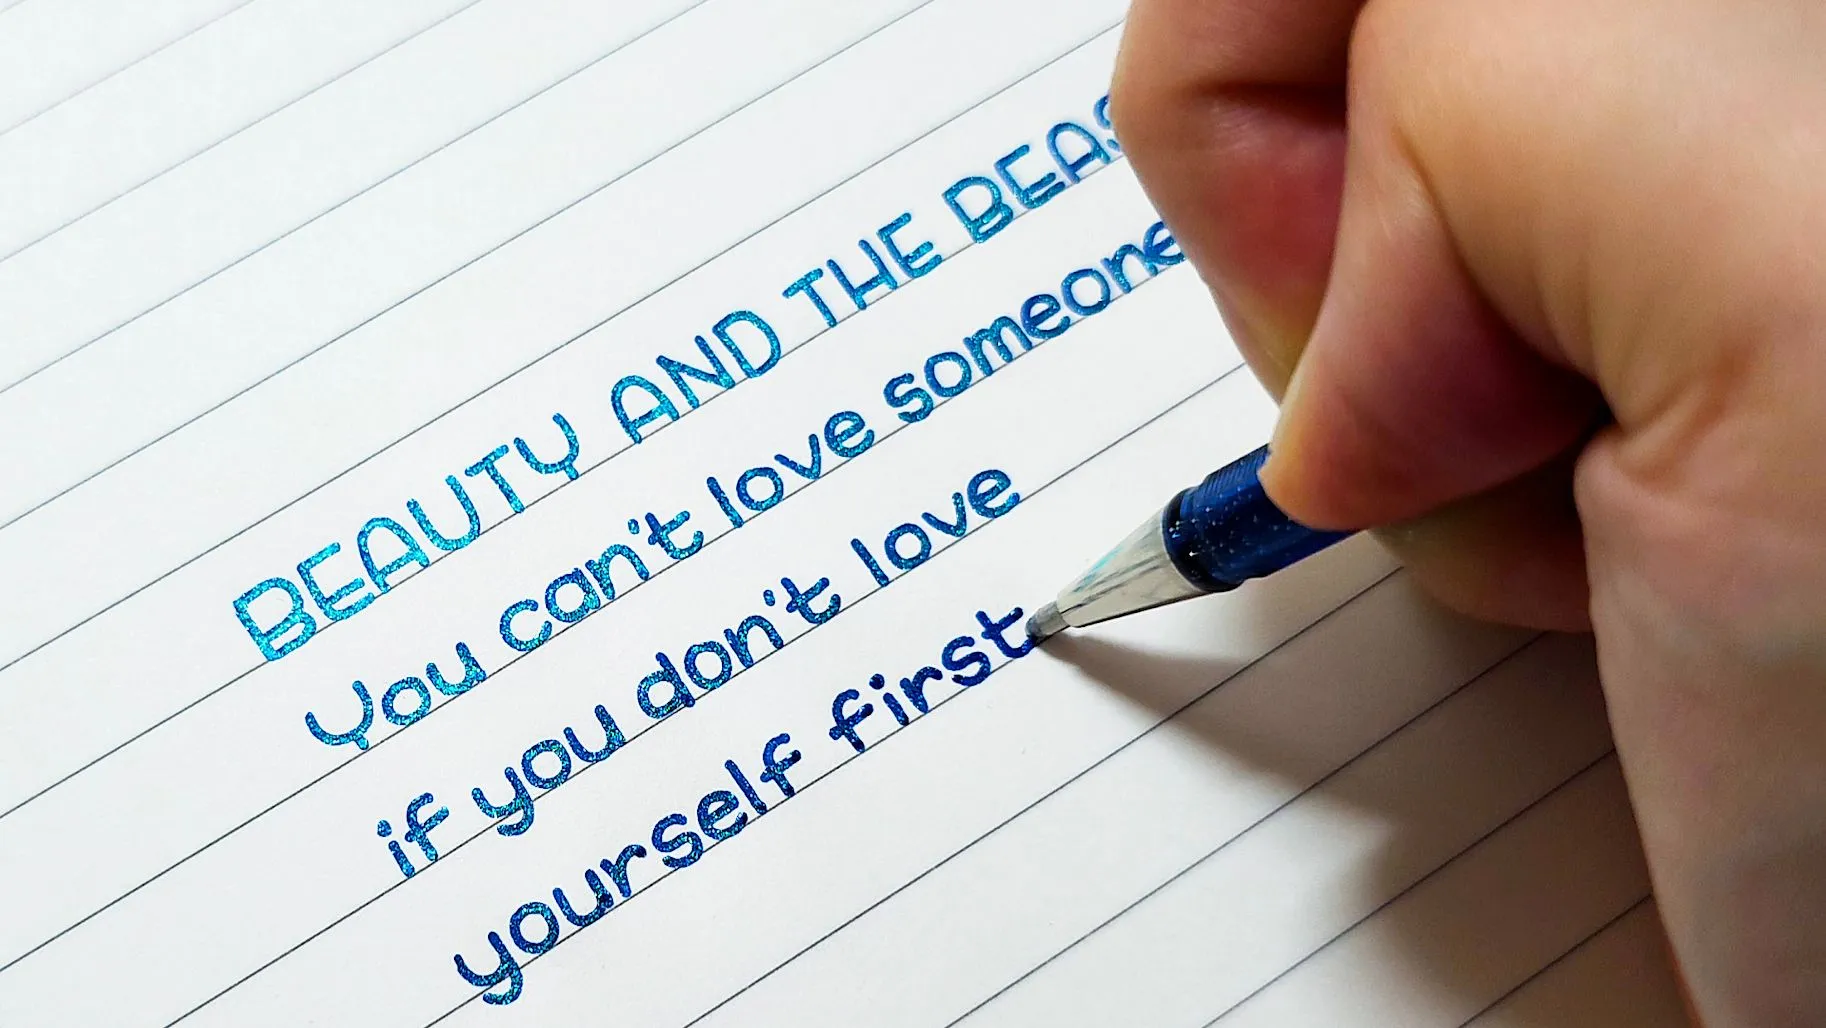 BEAUTY AND THE BEAS
You can't love someone
if you don't love
yourself first